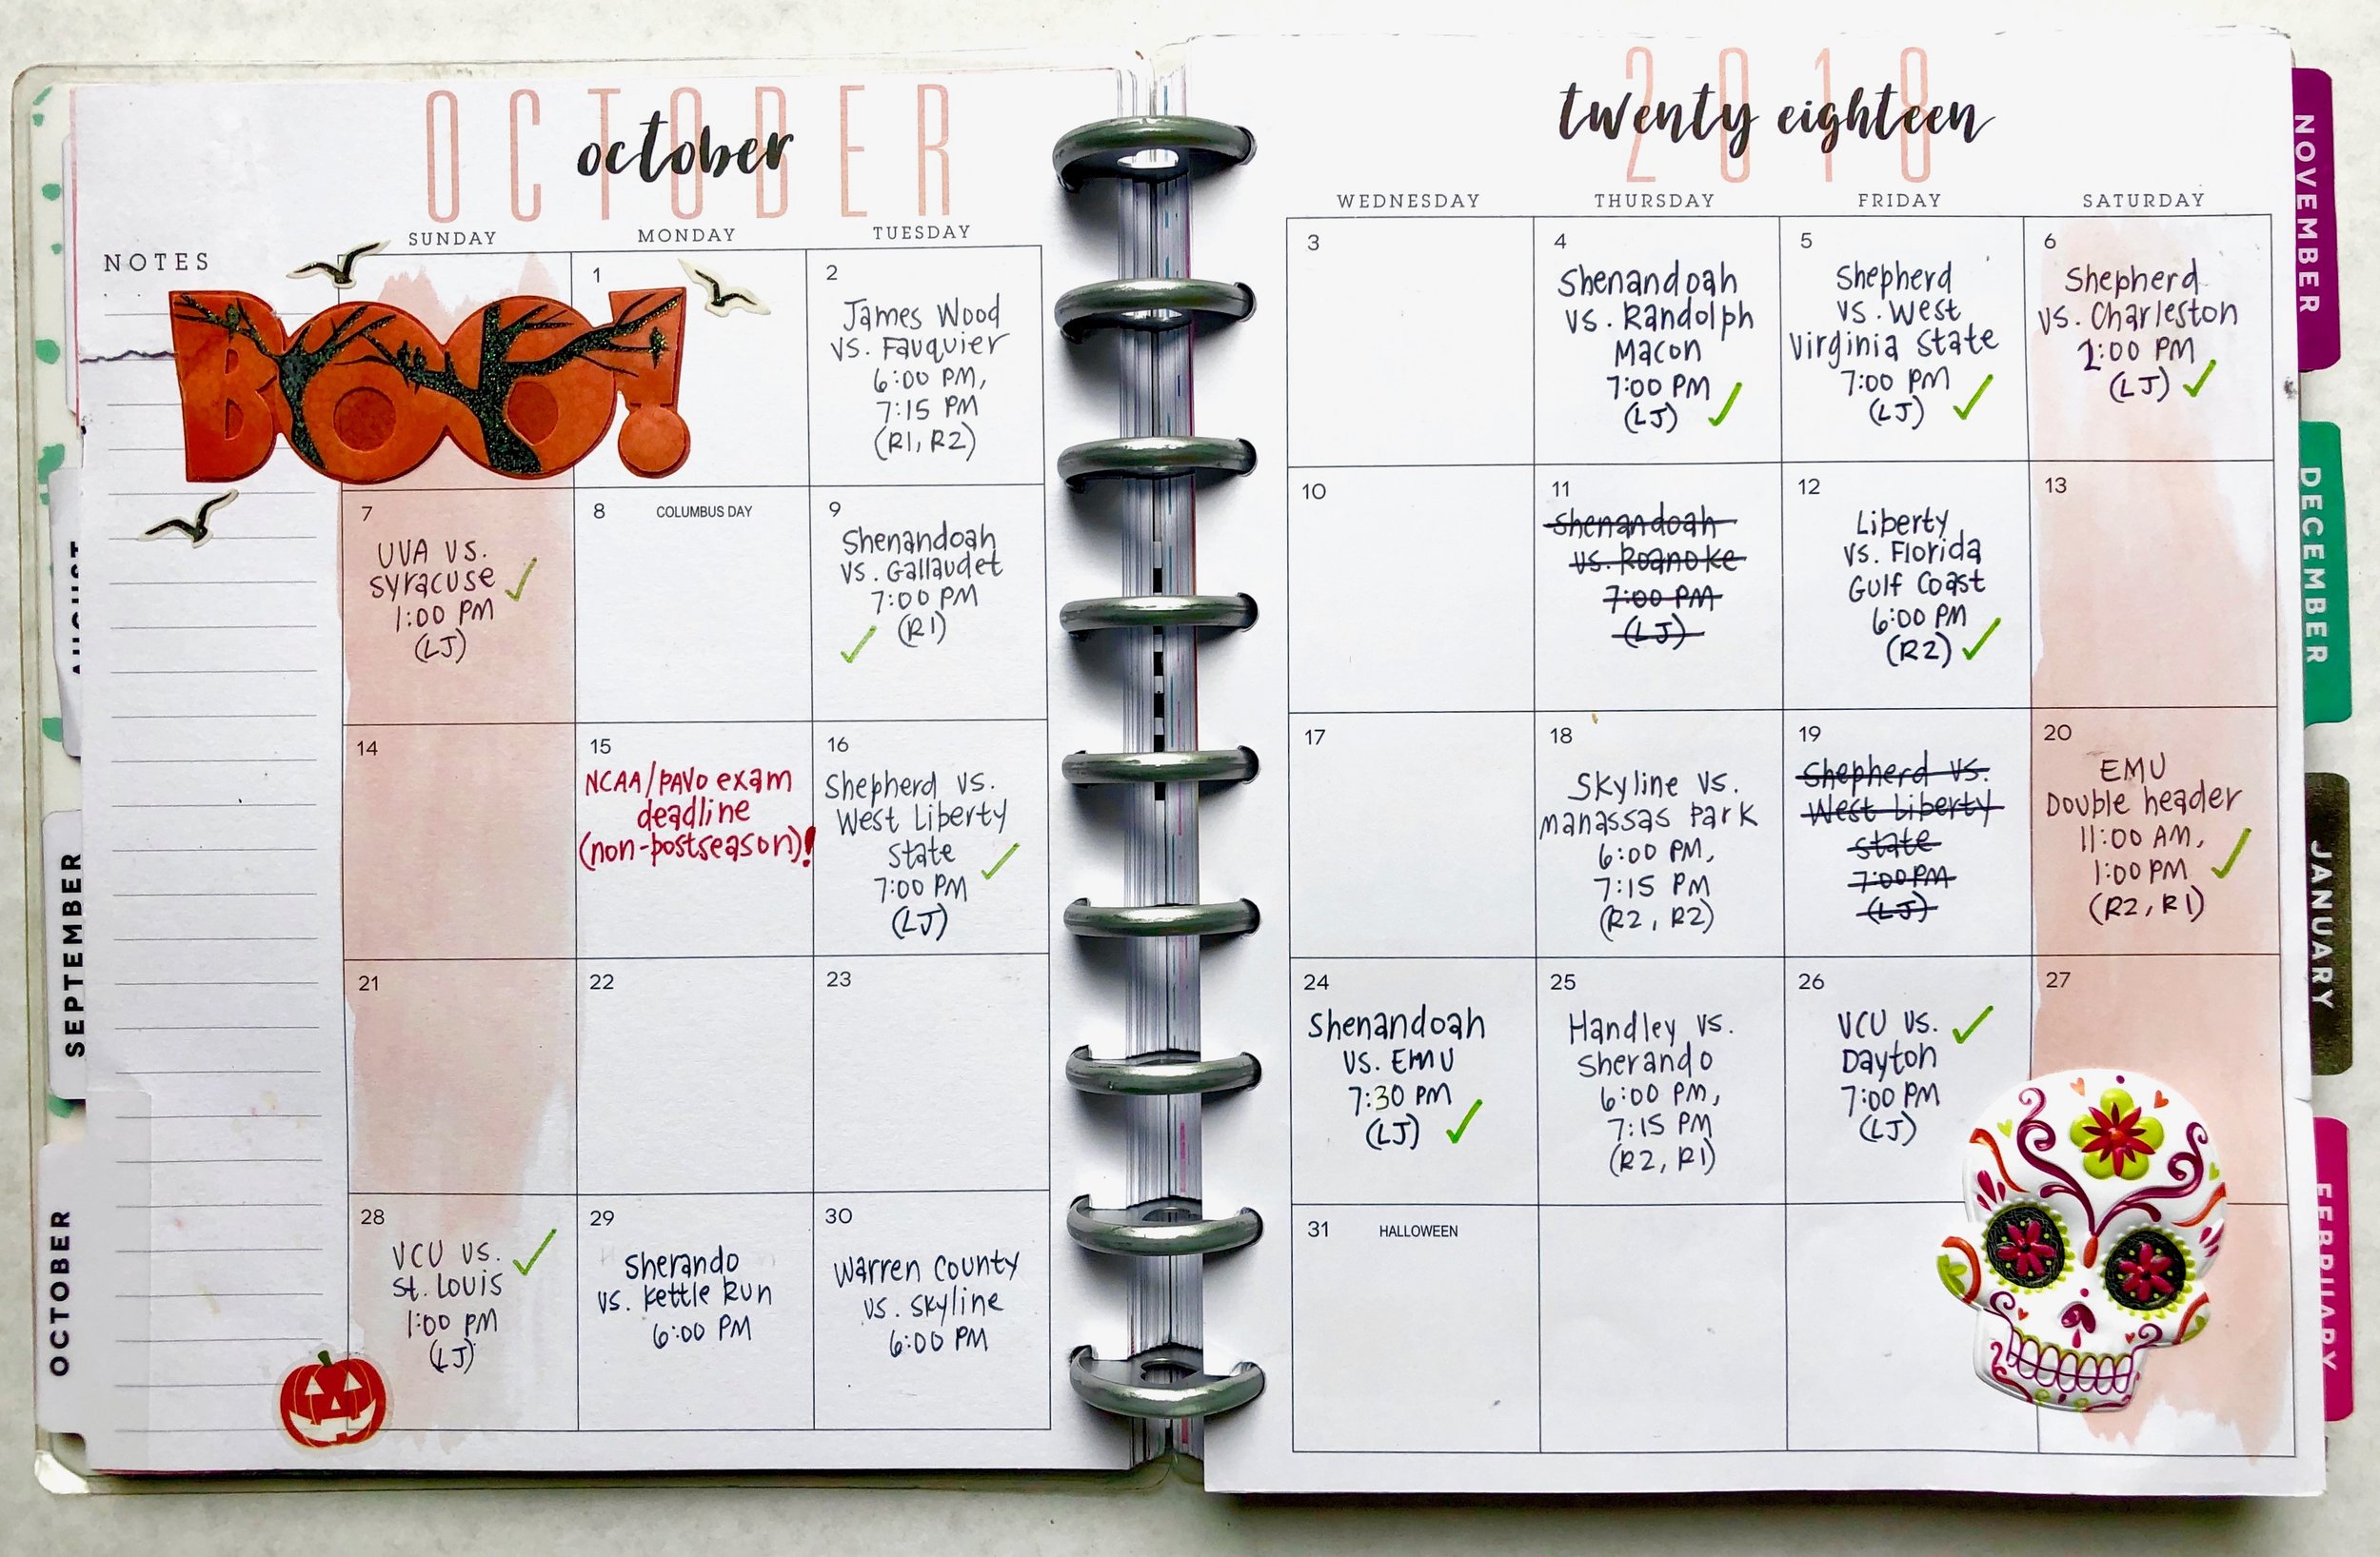 OCTOBER
october
2018
twenty eighteen
NOTES
SUNDAY
MONDAY
TUESDAY
WEDNESDAY
THURSDAY
FRIDAY
SATURDAY
BOO!
1
2
James Wood
vs. Fauquier
6:00 PM,
7:15 PM
(R1, R2)
3
4
Shenandoah
vs. Randolph
Macon
7:00 PM
(LJ) ✓
5
Shepherd
vs. West
Virginia State
7:00 PM
(LJ) ✓
6
Shepherd
vs. Charleston
2:00 PM
(LJ) ✓
7
UVA VS.
Syracuse ✓
1:00 PM
(LJ)
8 COLUMBUS DAY
9
Shenandoah
vs. Gallaudet
7:00 PM
✓ (R1)
10
11
Shenandoah
vs. Roanoke
7:00 PM
(LJ)
12
Liberty
vs. Florida
Gulf Coast
6:00 PM
(R2) ✓
13
14
15
NCAA/PAVO exam
deadline
(non-postseason)!
16
Shepherd vs.
West Liberty
State ✓
7:00 PM
(LJ)
17
18
Skyline vs.
Manassas Park
6:00 PM,
7:15 PM
(R2, R2)
19
Shepherd vs.
West Liberty
State
7:00 PM
(LJ)
20
EMU
Double header
11:00 AM,
1:00 PM ✓
(R2, R1)
21
22
23
24
Shenandoah
vs. EMU
7:30 PM
(LJ) ✓
25
Handley vs.
Sherando
6:00 PM,
7:15 PM
(R2, R1)
26
VCU vs. ✓
Dayton
7:00 PM
(LJ)
27
28
VCU vs. ✓
St. Louis
1:00 PM
(LJ)
29
Sherando
vs. Kettle Run
6:00 PM
30
Warren County
vs. Skyline
6:00 PM
31 HALLOWEEN
AUGUST
SEPTEMBER
OCTOBER
NOVEMBER
DECEMBER
JANUARY
FEBRUARY